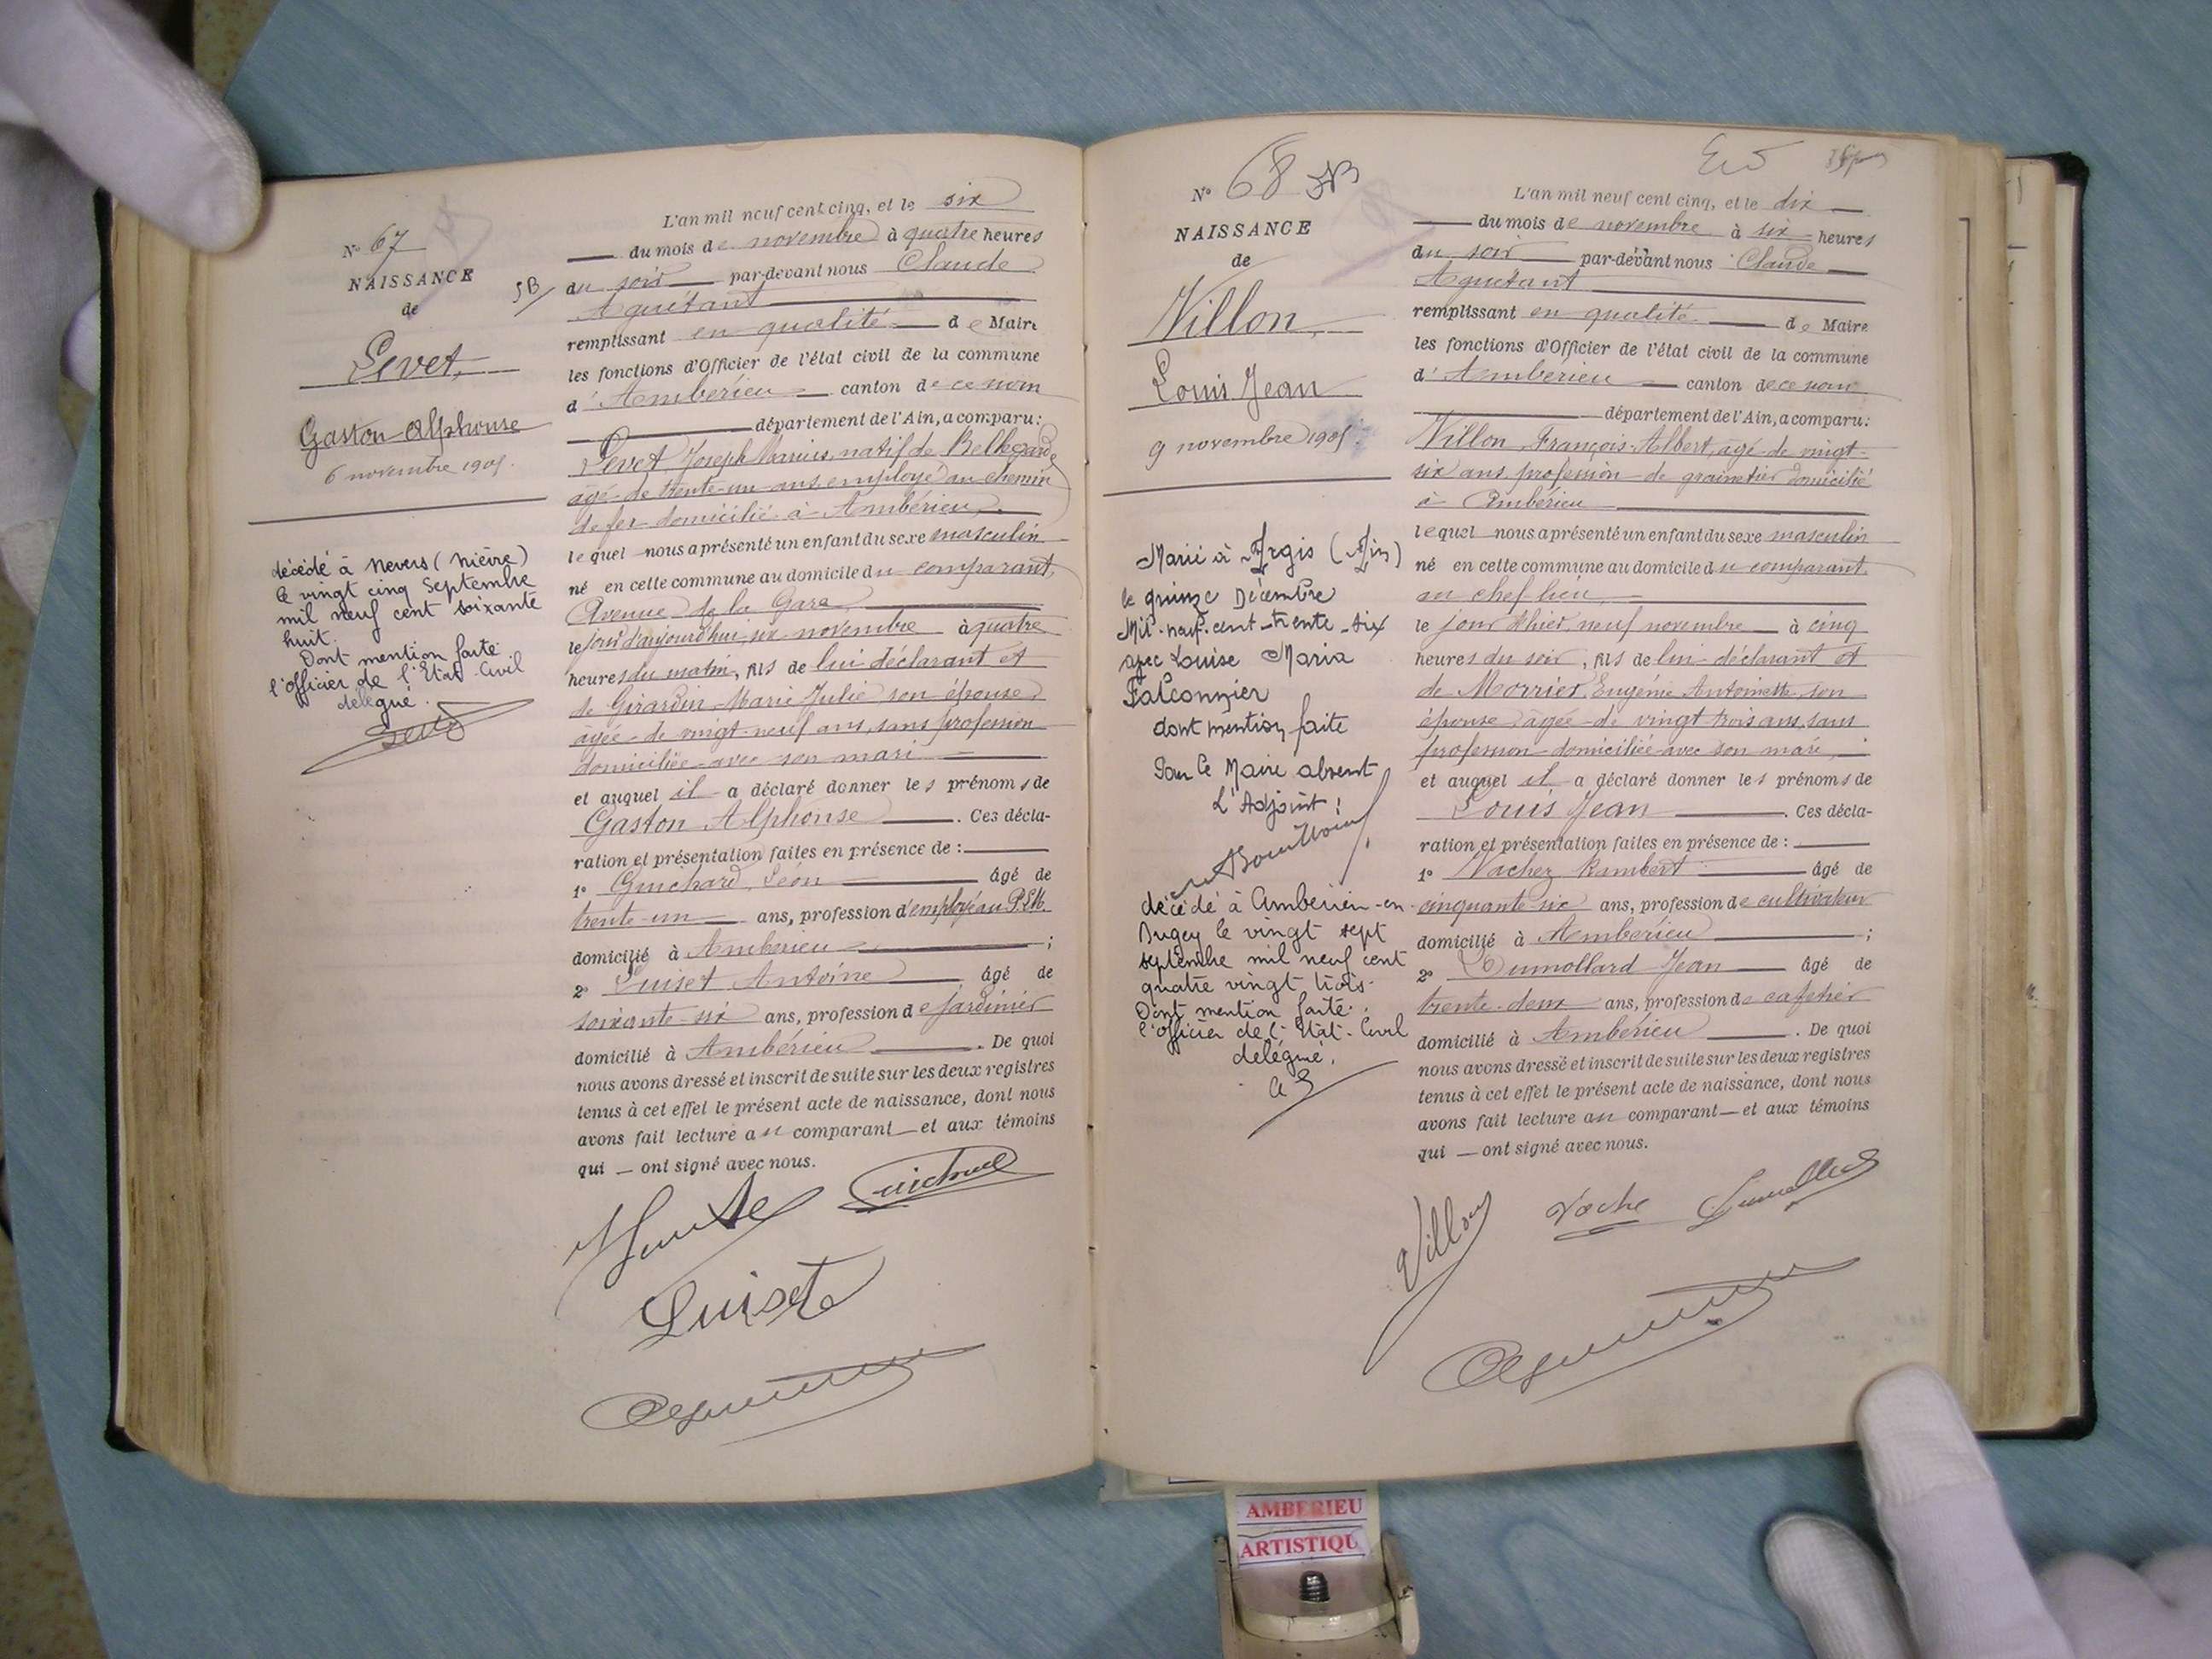 N° 67
NAISSANCE
de
Levet,
Gaston Alphonse
6 novembre 1905.
décédé à Nevers (Nièvre)
le vingt cinq Septembre
mil neuf cent soixante
huit.
Dont mention faite
l'officier de l'Etat Civil
délégué.
SB
L'an mil neuf cent cinq, et le six
du mois de novembre à quatre heures
du soir par-devant nous Claude
Aguétant
remplissant en qualité de Maire
les fonctions d'Officier de l'état civil de la commune
d'Ambérieu canton de ce nom
département de l'Ain, a comparu:
Levet, Joseph Marius, natif de Bellegarde
âgé de trente-un ans, employé au chemin
de fer domicilié à Ambérieu,
lequel nous a présenté un enfant du sexe masculin
né en cette commune au domicile du comparant,
Avenue de la Gare
le jour d'aujourd'hui, six novembre à quatre
heures du matin, fils de lui déclarant et
de Girardin Marie Julie son épouse,
agée de vingt-neuf ans, sans profession
domiciliée avec son mari
et auquel il a déclaré donner les prénoms de
Gaston Alphonse. Ces décla-
ration et présentation faites en présence de :
1° Guichard, Léon âgé de
trente-un ans, profession d'employé au P.L.M.
domicilié à Ambérieu ;
2° Luiset Antoine âgé de
soixante-six ans, profession de jardinier
domicilié à Ambérieu. De quoi
nous avons dressé et inscrit de suite sur les deux registres
tenus à cet effet le présent acte de naissance, dont nous
avons fait lecture au comparant et aux témoins
qui — ont signé avec nous.
Guichard
Luiset
N° 68 SB
NAISSANCE
de
Villon,
Louis Jean
9 novembre 1905.
Marié à Argis (Ain)
le quinze Décembre
Mil-neuf-cent-trente-six
avec Louise Maria
Falconnier
dont mention faite
Pour le Maire absent
L'Adjoint :
décédé à Ambérieu-en-
Bugey le vingt sept
septembre mil neuf cent
quatre vingt trois.
Dont mention faite.
l'officier de l'Etat-Civil
délégué.
L'an mil neuf cent cinq, et le dix
du mois de novembre à six heures
du soir par-devant nous Claude
Aguétant
remplissant en qualité de Maire
les fonctions d'Officier de l'état civil de la commune
d'Ambérieu canton de ce nom
département de l'Ain, a comparu:
Villon, François-Albert, agé de vingt-
six ans, profession de grainetier domicilié
à Ambérieu
lequel nous a présenté un enfant du sexe masculin
né en cette commune au domicile du comparant,
au chef lieu,
le jour d'hier, neuf novembre à cinq
heures du soir, fils de lui déclarant et
de Morrier, Eugénie Antoinette son
épouse, âgée de vingt trois ans, sans
profession domiciliée avec son mari,
et auquel il a déclaré donner les prénoms de
Louis Jean. Ces décla-
ration et présentation faites en présence de :
1° Vachez Rambert âgé de
cinquante-six ans, profession de cultivateur
domicilié à Ambérieu ;
2° Dumollard Jean âgé de
trente-deux ans, profession de cafetier
domicilié à Ambérieu. De quoi
nous avons dressé et inscrit de suite sur les deux registres
tenus à cet effet le présent acte de naissance, dont nous
avons fait lecture au comparant — et aux témoins
qui — ont signé avec nous.
Villon
Vache
Dumollard
AMBERIEU
ARTISTIQU